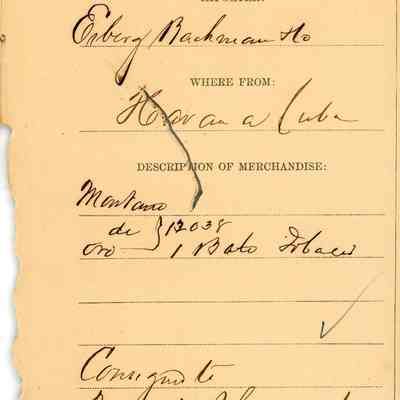 Esberg Bachman & Co
WHERE FROM:
Havana Cuba
DESCRIPTION OF MERCHANDISE:
Montano
de } 12038
oro 1 Bale Tobacco
Consigned to